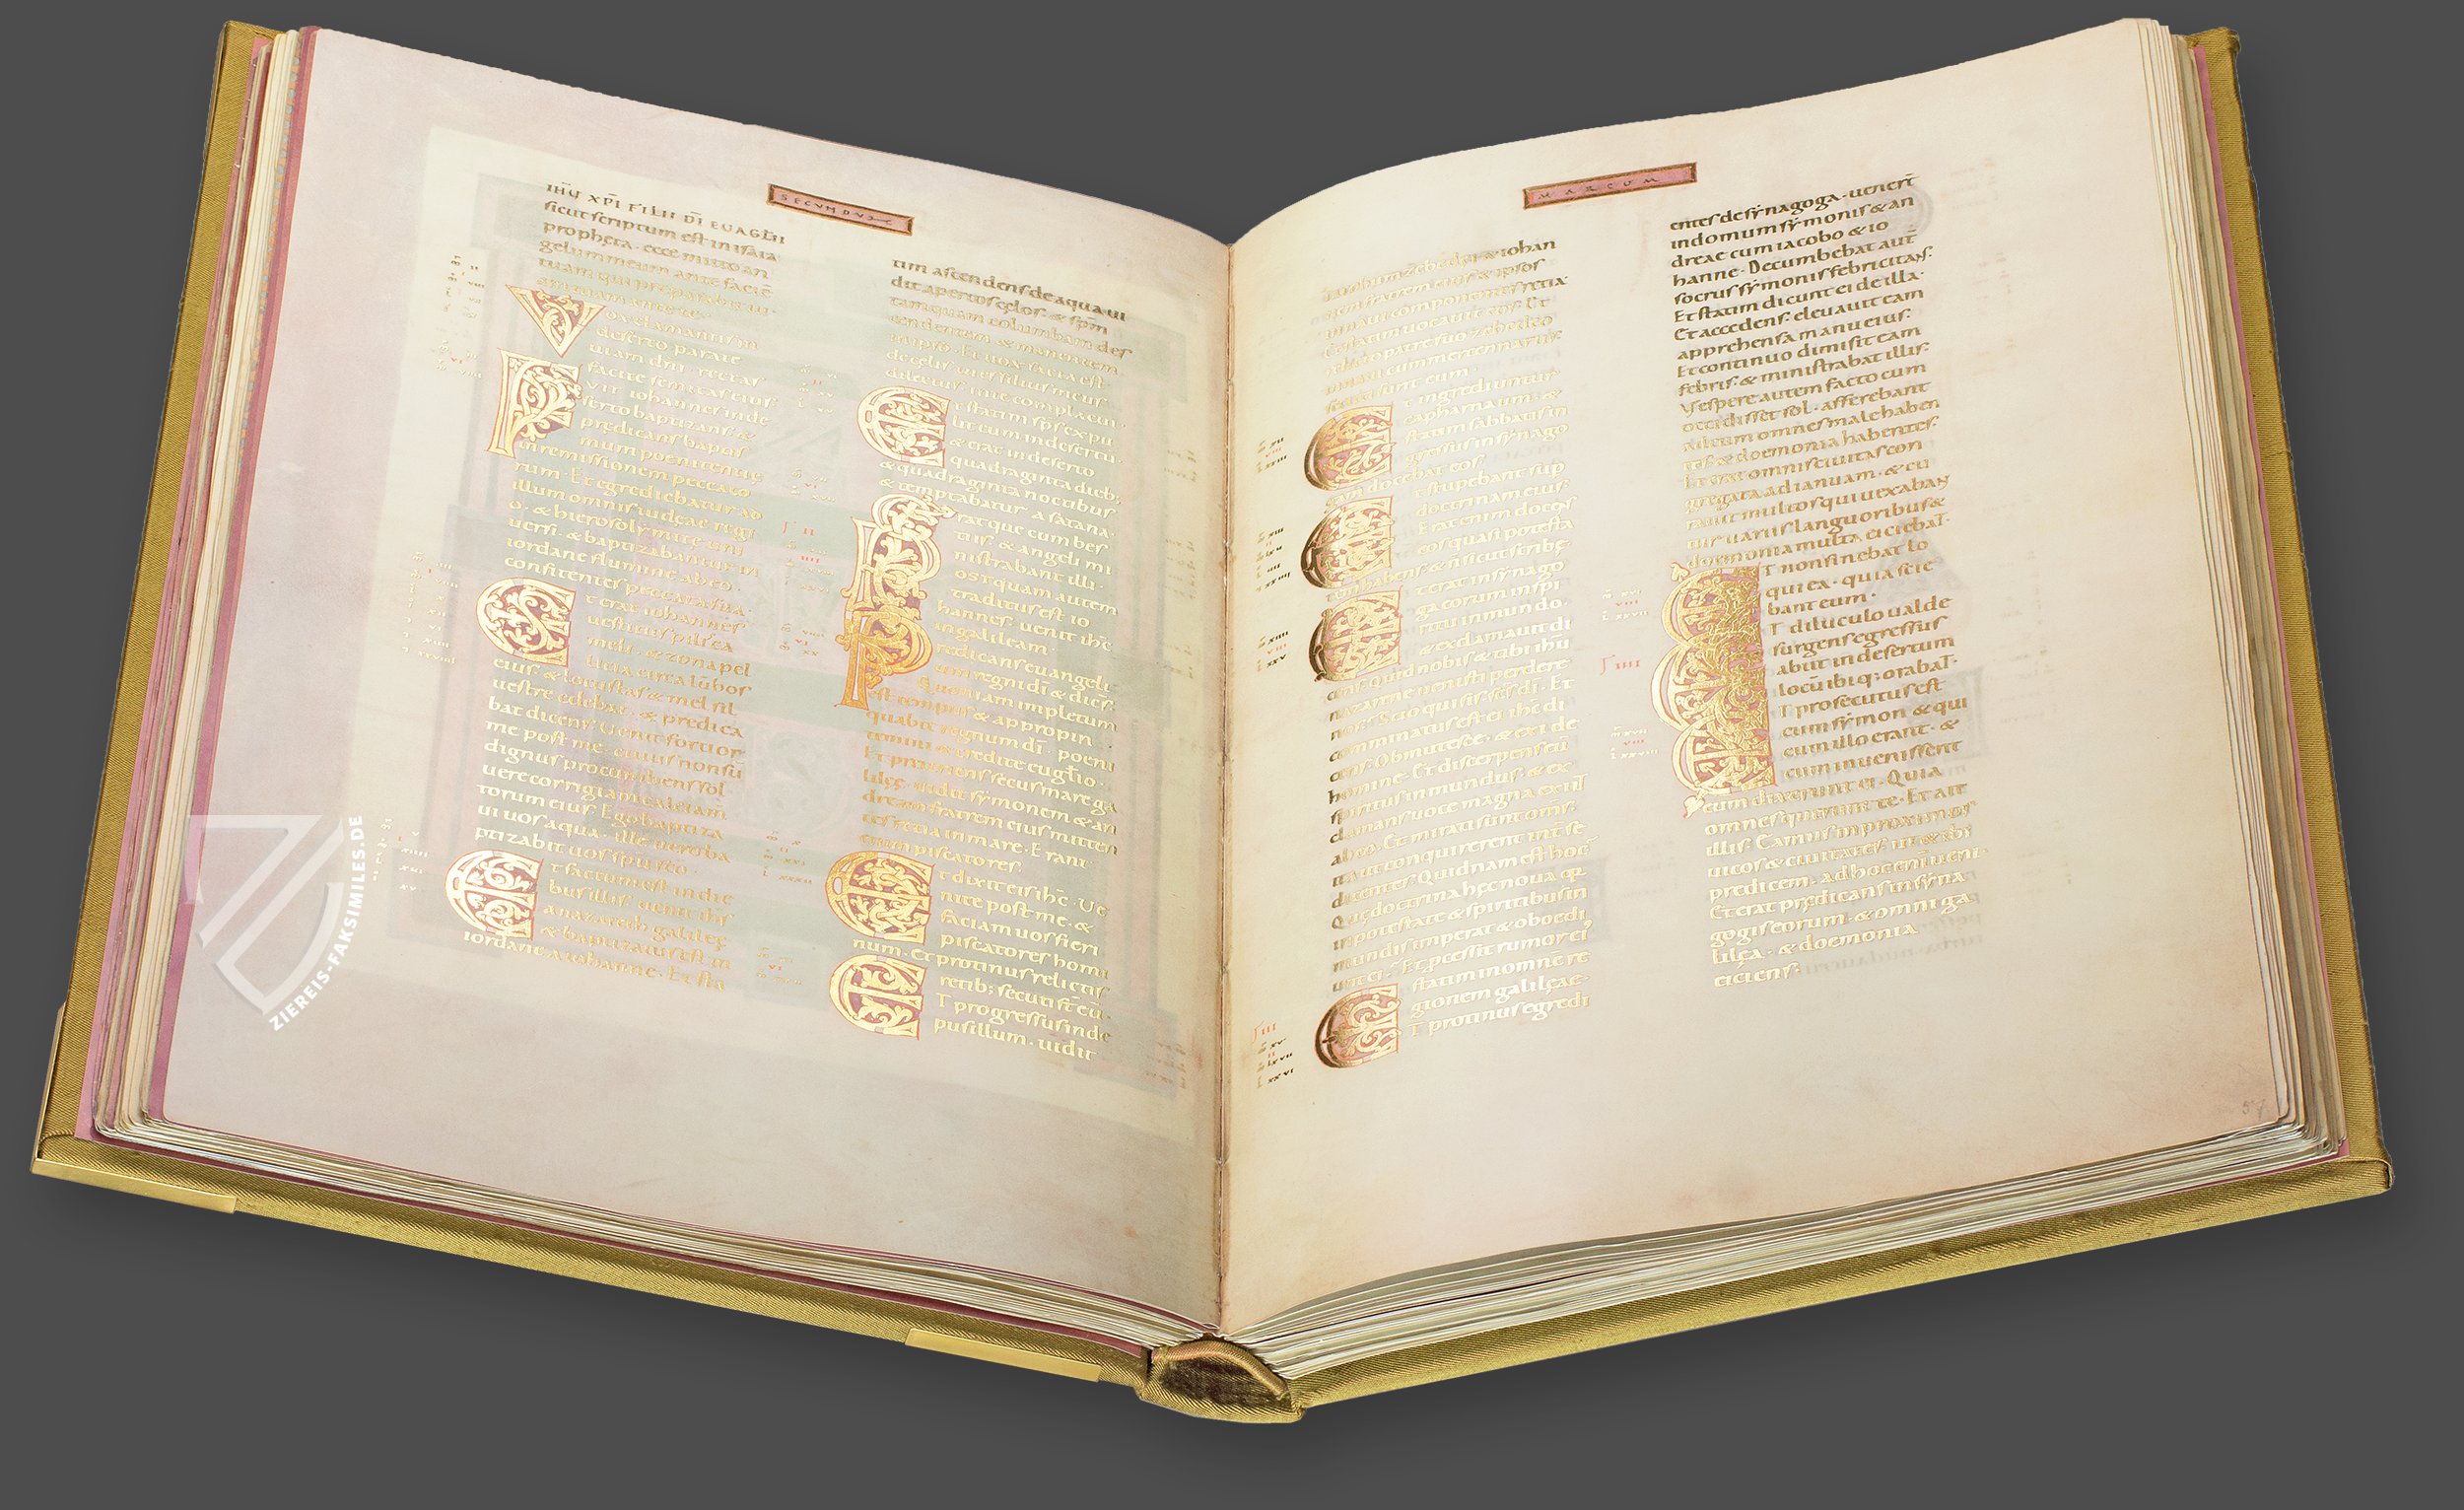 SECUNDUS
IHU XPI FILII DI EUAGLII
sicut scriptum est in isaia
propheta · ecce mitto an
gelum meum ante facie
tuam qui preparabit ui
am tuam ante te ·
Vox clamantis in
deserto parate
uiam dni rectas
facite semitas eius
Fuit iohannes inde
serto baptizans &
predicans baptis
mum poenitentię
in remissionem peccato
rum · Et egrediebatur ad
illum omnis iudęae regi
o · & hierosolymitę uni
uersi · & baptizabantur in
iordane flumine ab eo ·
confitentes peccata sua ·
Et erat iohannes
uestitus pilis ca
meli · & zona pel
licia circa lūbos
eius · & locustas & mel sil
uestre edebat · & predica
bat dicens · Uenit fortior
me post me · cuius non sū
dignus procumbens sol
uere corrigiam calciam
torum eius · Ego baptiza
ui uos aqua · ille uero ba
ptizabit uos spu sco ·
Et factum est in die
bus illis · uenit ihs
a nazareth galileę
& baptizatus est in
iordane a iohanne · Et sta
tim ascendens de aqua ui
dit apertos cęlos · & spm
tamquam columbam des
cendentem & manentem
in ipso · Et uox facta est
de celis · tu es filius meus
dilectus · in te complacui ·
Et statim sps expu
lit eum in desertū
& erat in deserto
quadraginta dieb;
& quadraginta noctibus
& temptabatur a satana ·
Eratque cum bes
tiis · & angeli mi
nistrabant illi ·
Postquam autem
traditus est io
hannes · uenit ihc
in galileam ·
Predicans euangeli
um regni di & dices
Quoniam impletum
est tempus & appropin
quabit regnum di · poeni
temini & credite euglio ·
Et preteriens secus mare ga
lileę · uidit symonem & an
dream fratrem eius mitten
tes retia in mare · Erant
enim piscatores ·
Et dixit eis ihc · Ue
nite post me · &
faciam uos fieri
piscatores homi
num · Et protinus relictis
retib; secuti st eū ·
ET progressus inde
pusillum · uidit
MARCUM
iacobum zebedei & iohan
nem fratrem eius & ipsos
in naui componentes retia
Et statim uocauit eos · Et
relicto patre suo zebedeo
in naui cum mercennariis
secuti sunt eum ·
Et ingrediuntur
capharnaum · &
statim sabbatis in
gressus in synago
gam docebat eos ·
Et stupebant sup
doctrinam eius ·
Erat enim docens
eos quasi potesta
tem habens & n sicut scribę ·
Et erat in synago
ga eorum in spi
ritu inmundo ·
& exclamauit di
cens · Quid nobis & tibi ihu
nazarene uenisti perdere
nos · Scio qui sis · scs di · Et
comminatus est ei ihc di
cens · Obmutesce · & exi de
homine · Et discerpens eū
spiritus inmundus · & ex
clamans uoce magna exiit
ab eo · Et mirati sunt oms ·
ita ut conquirerent int se
dicentes · Quidnam est hoc
Quę doctrina hęc noua · qa
in potestate & spiritibus in
mundis imperat & oboedi
unt ei · Et pcessit rumor ei
statim in omne re
gionem galileae ·
ET protinus egredi
entes de synagoga · uenert
in domum symonis & an
dreae cum iacobo & io
hanne · Decumbebat aut
socrus symonis febricitans ·
Et statim dicunt ei de illa ·
Et accedens · eleuauit eam
apprehensa manu eius ·
Et continuo dimisit eam
febris · & ministrabat illis ·
Vespere autem facto cum
occidisset sol · afferebant
ad eum omnes male haben
tes & doemonia habentes ·
Et erat omnis ciuitas con
gregata ad ianuam · & cu
rauit multos qui uexabant
uariis languoribus &
doemonia multa eiciebat ·
ET non sinebat lo
qui ea · quia scie
bant eum ·
ET diluculo ualde
surgens egressus
abiit in desertum
locū ibiq; orabat ·
ET prosecutus est
eum symon & qui
cum illo erant · &
cum inuenissent
eum dixerunt ei · Quia
omnes querunt te · Et ait
illis · Eamus in proximos
uicos & ciuitates · ut & ibi
predicem · ad hoc eni ueni ·
Et erat predicans in syna
gogis eorum · & omni ga
lilęa · & doemonia
eiciens ·
57
ZIEREIS-FAKSIMILES.DE